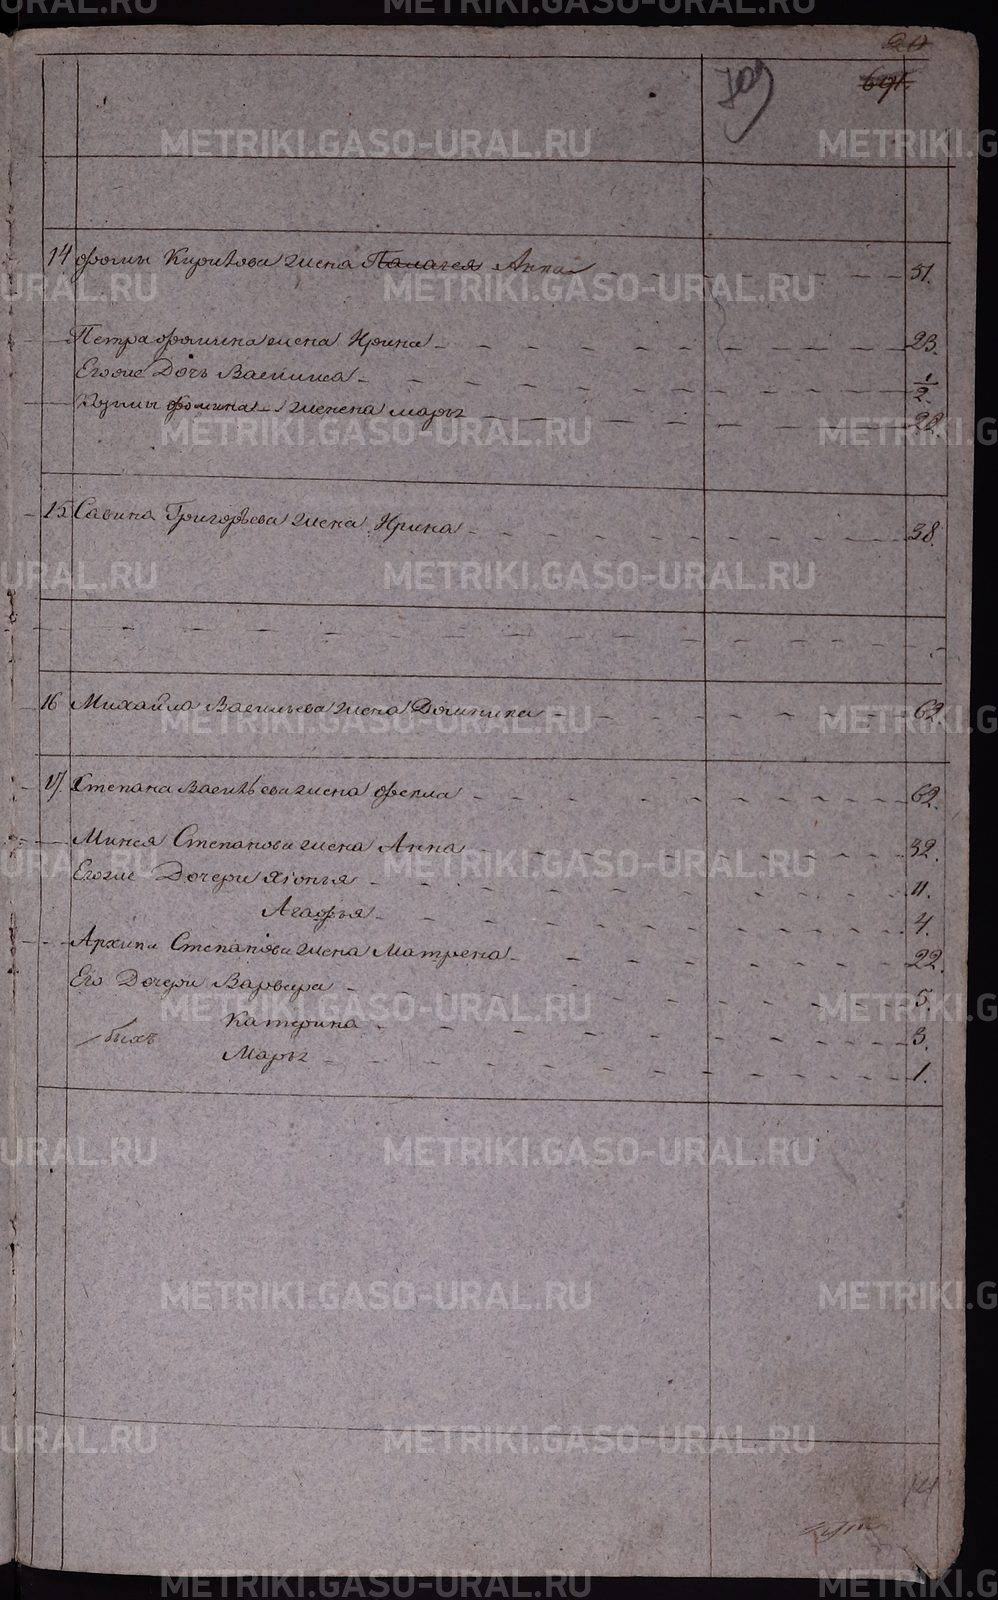 709
14 Фомы Кирилова жена Палагея Анна 51.
Петра Фомина жена Ирина 23.
Егоже Дочь Василиса 1/2.
Кузмы Фомина женена Марья 28.
15 Савина Григорьева жена Ирина 38.
16 Михайло Васильева жена Домника 62.
17 Степана Васильева жена Фекла 62.
Минея Степанова жена Анна 32.
Егоже Дочери Хіонья 11.
Агафья 4.
Архипа Степанова жена Матрена 22.
Его Дочери Варвара 5.
Катерина 3.
Марья 1.
METRIKI.GASO-URAL.RU